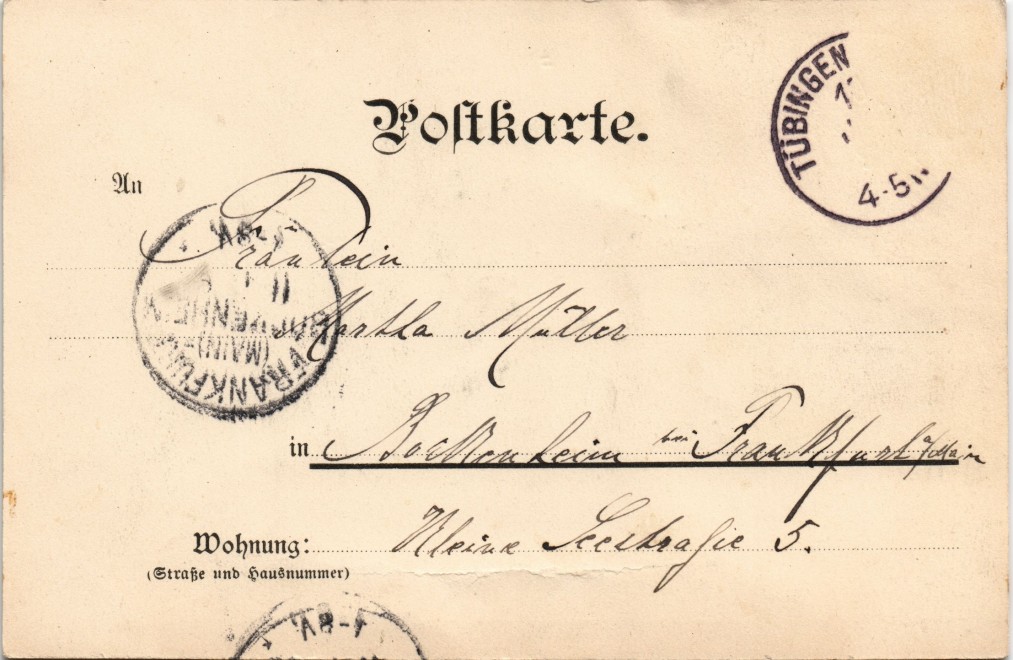 Postkarte.
TÜBINGEN
4-5 N.
An
Fräulein
Martha Müller
in Bockenheim bei Frankfurt a/Main
Wohnung: Kleine Seestraße 5.
(Straße und Hausnummer)
FRANKFURT
(MAIN)-
BOCKENHEIM
11
7-8V.
7-8V.